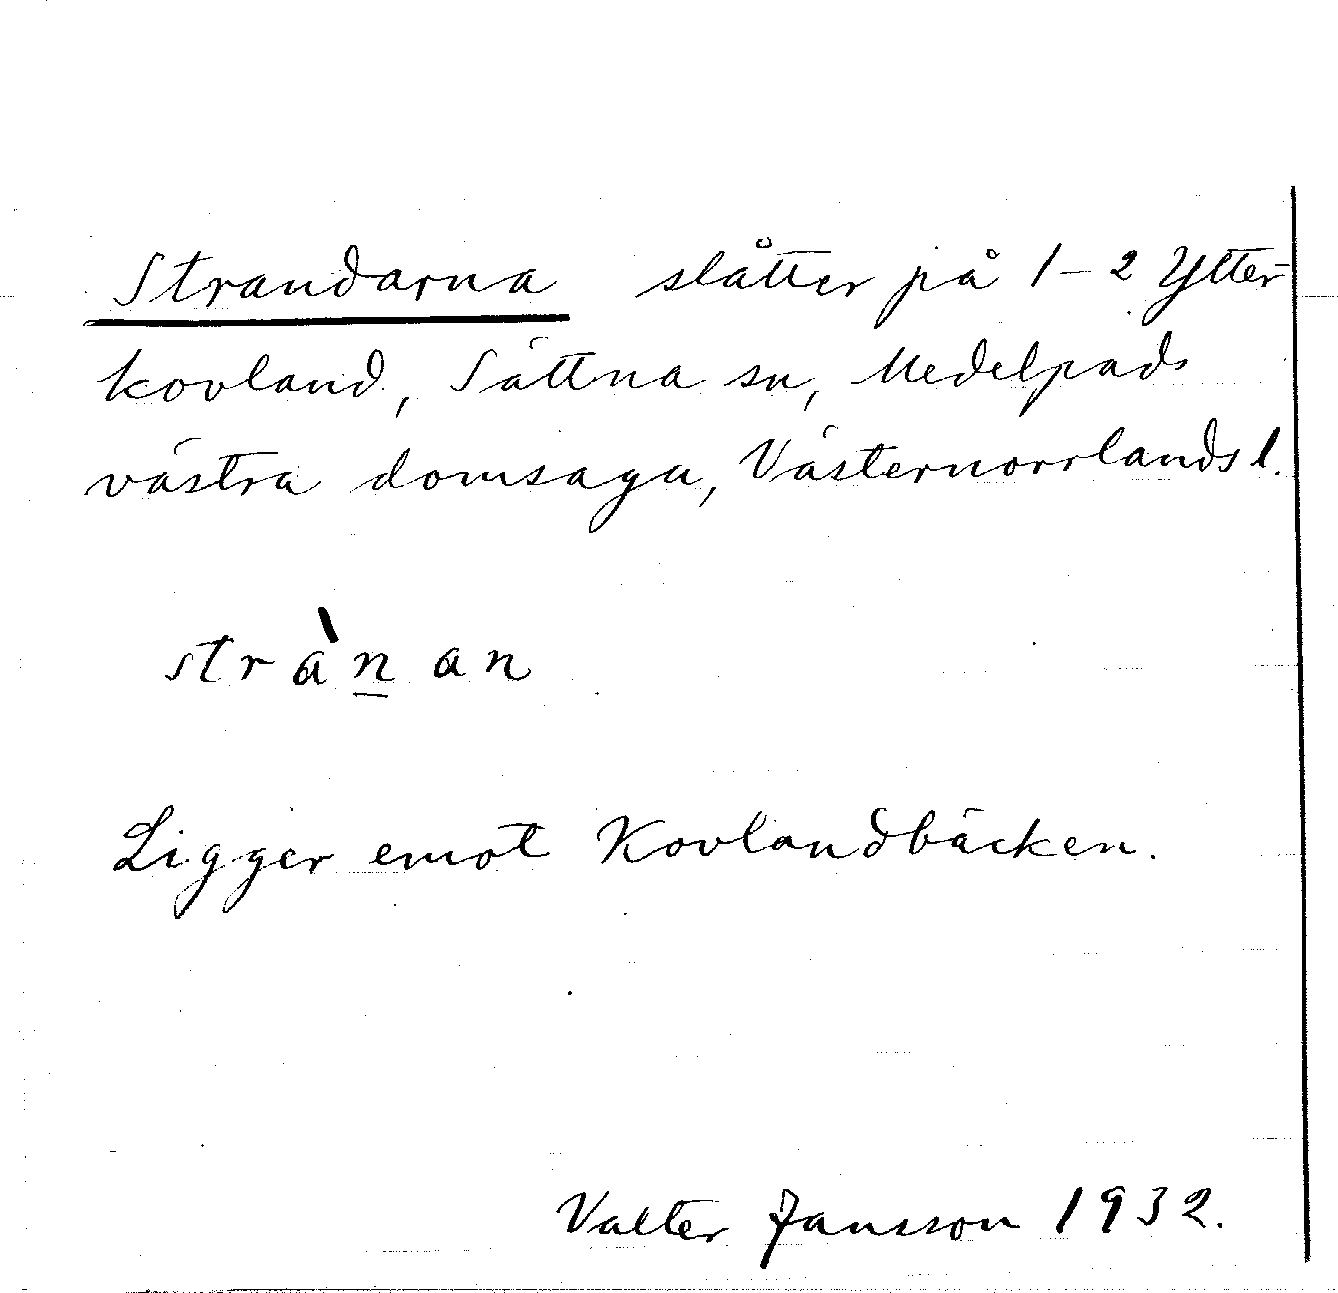 Strandarna slåtter på 1-2 Ytter-
kovland, Sättna sn, Medelpads
västra domsaga, Västernorrlands l.
stràn̲an
Ligger emot Kovlandbäcken.
Valter Jansson 1932.